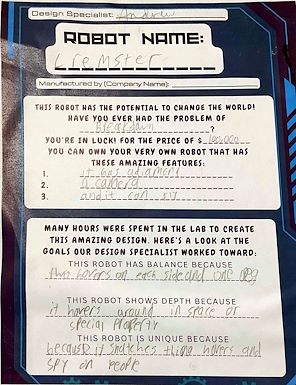 Design Specialist: Andrew
ROBOT NAME:
Lremster
Manufactured by (Company Name):
THIS ROBOT HAS THE POTENTIAL TO CHANGE THE WORLD!
HAVE YOU EVER HAD THE PROBLEM OF
Breakdown?
YOU'RE IN LUCK! FOR THE PRICE OF $
YOU CAN OWN YOUR VERY OWN ROBOT THAT HAS
THESE AMAZING FEATURES:
1. it has
2. camera
3. and it can fly
MANY HOURS WERE SPENT IN THE LAB TO CREATE
THIS AMAZING DESIGN. HERE'S A LOOK AT THE
GOALS OUR DESIGN SPECIALIST WORKED TOWARD:
THIS ROBOT HAS BALANCE BECAUSE
hovers on each side and one
THIS ROBOT SHOWS DEPTH BECAUSE
it hovers around in space or
special property
THIS ROBOT IS UNIQUE BECAUSE
because it snatches thing hovers and
spy on people